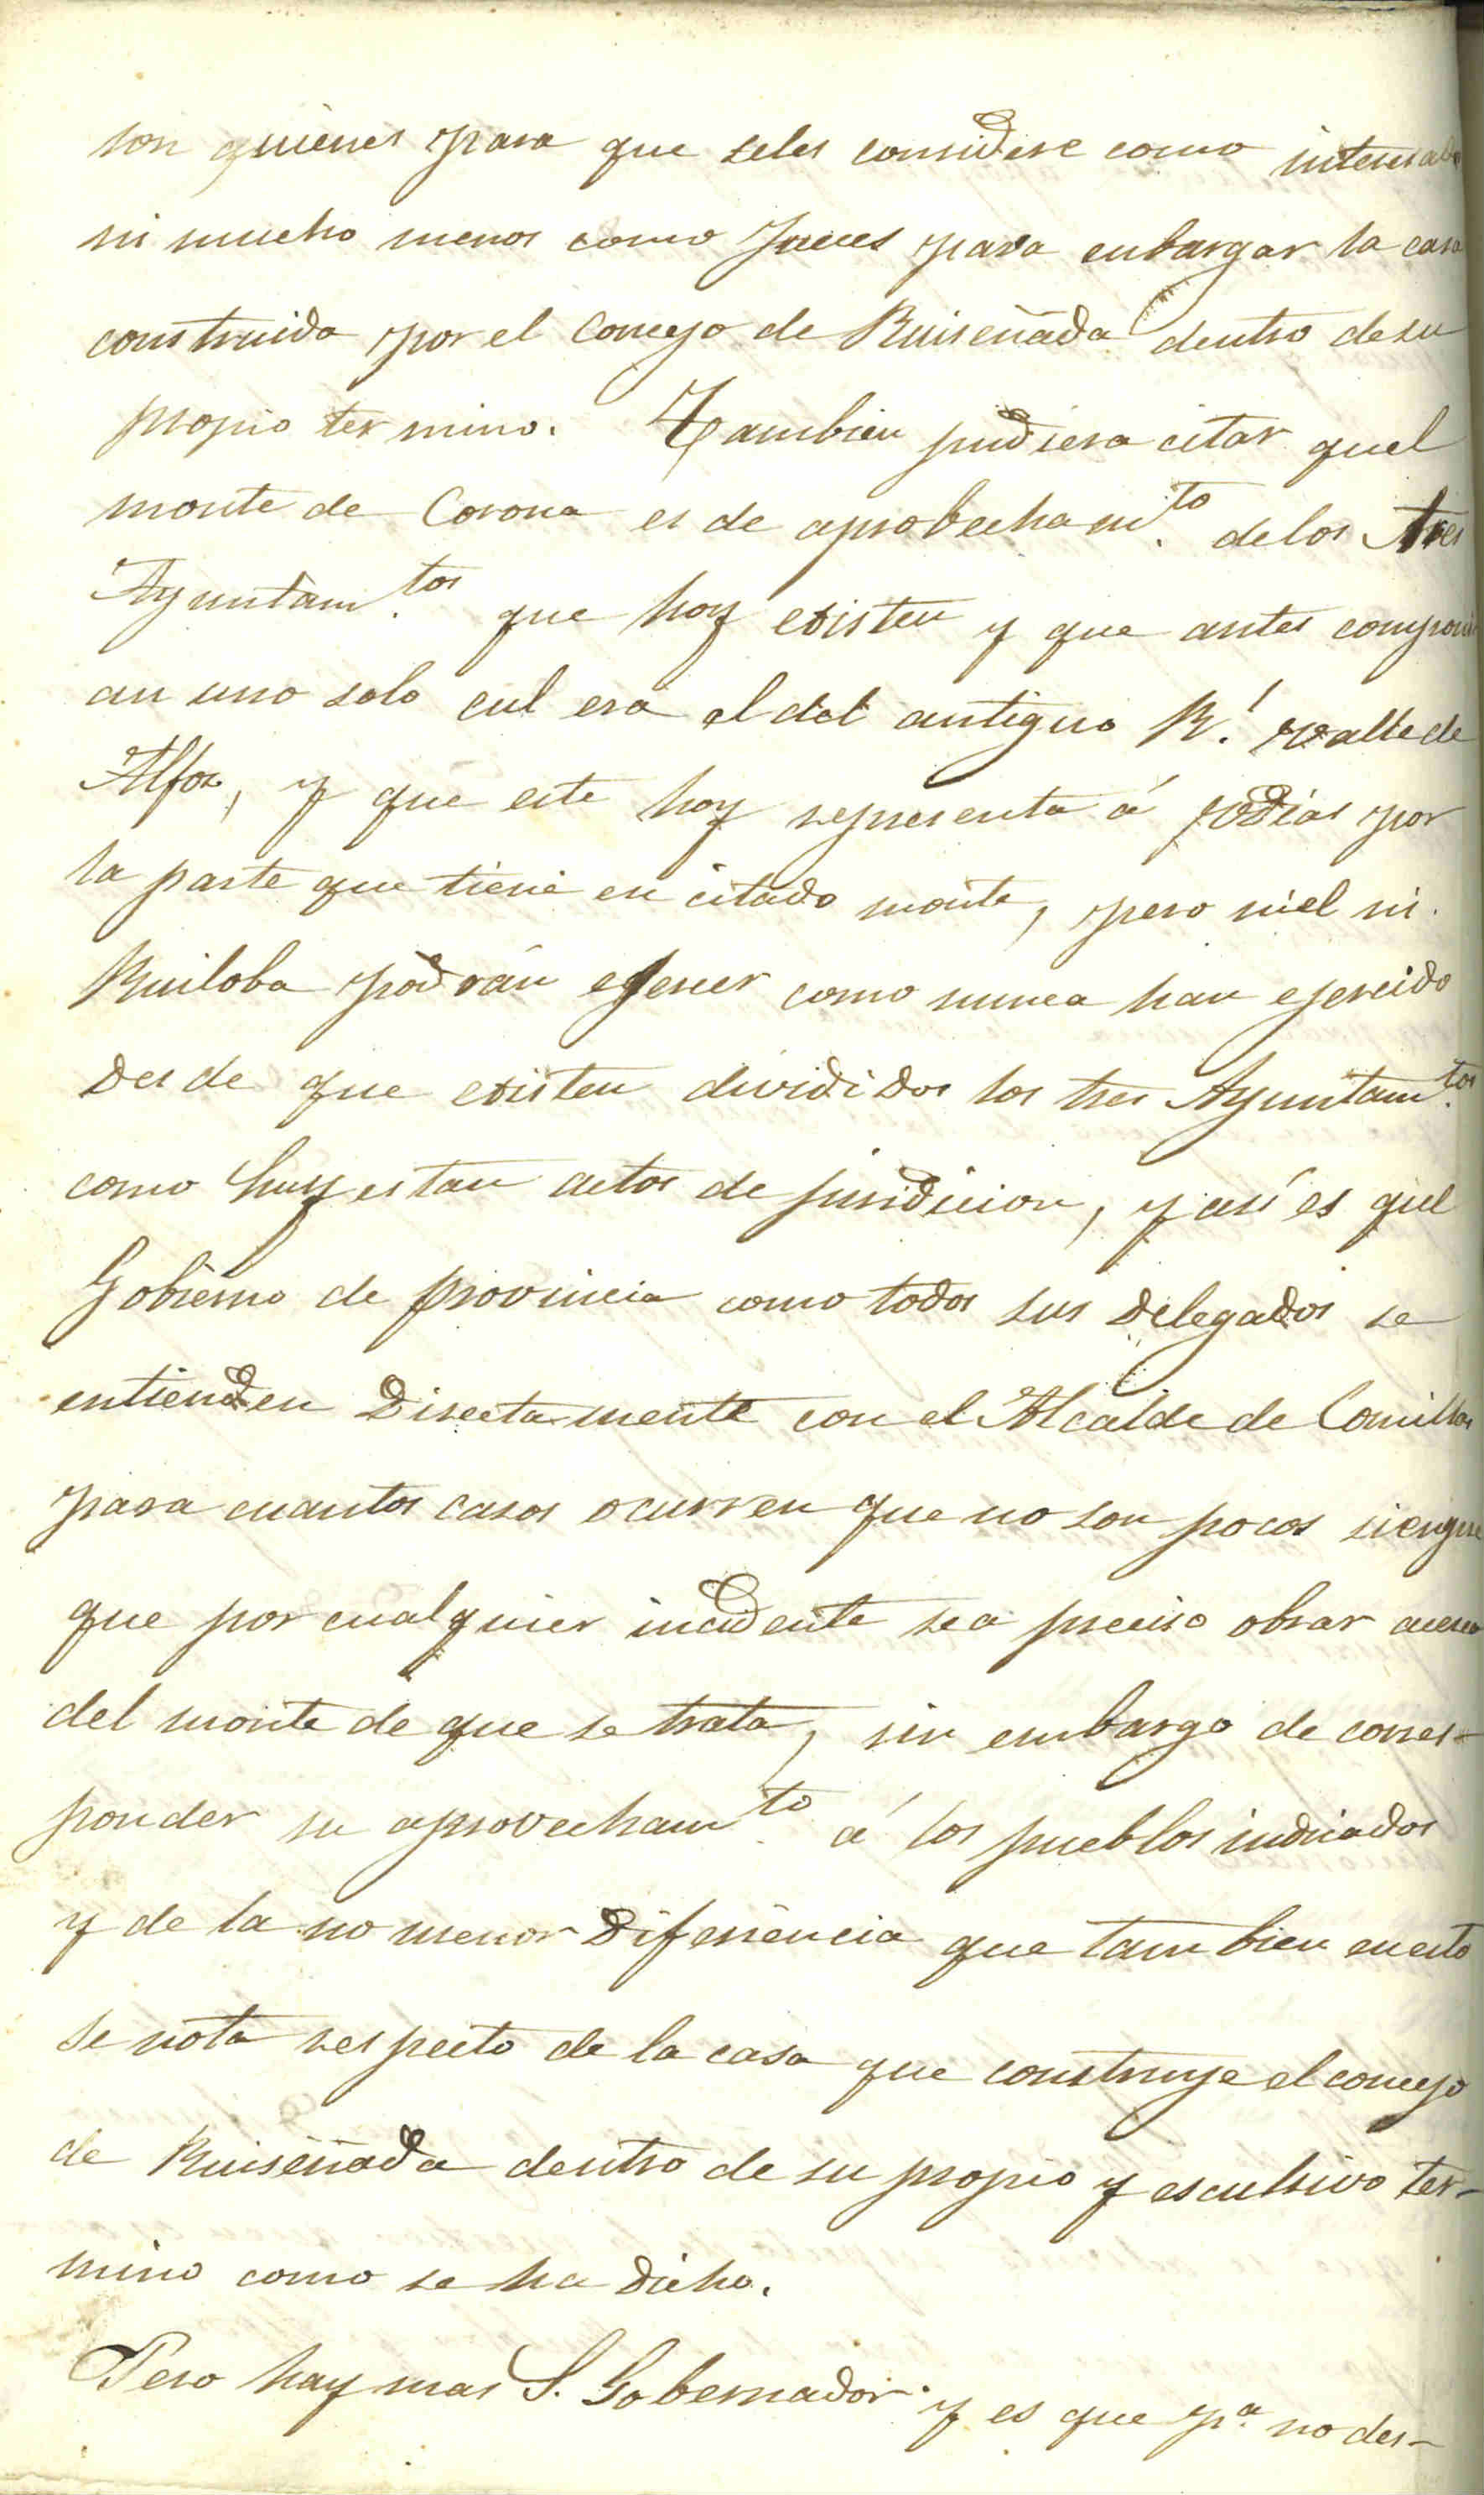 son quienes para que seles considere como interesados
ni mucho menos como Jueces para enbargar la casa
construida por el Concejo de Ruiseñada dentro desu
propio termino. Tambien pudiera citar quel
monte de Corona es de aprobecham.to delos tres
Ayuntam.tos que hoy esisten y que antes componi
an uno solo cul era el del antiguo R.l valle de
Alfoz, y que este hoy representa á Udias por
la parte que tiene en citado monte, pero niel ni
Ruiloba podrán ejercer como nunca han ejercido
desde que esisten divididos los tres Ayuntam.tos
como huy estan actos de juridicion, y asi es quel
Gobierno de provincia como todos sus delegados se
entienden directamente con el Alcalde de Comillas
para cuantos casos ocurren que no son pocos siempre
que por cualquier incidente sea preciso obrar acerca
del monte de que se trata, sin embargo de corres-
ponder su aprovecham.to á los pueblos indicados
y de la no menor diferiencia que tambien enesto
se nota respecto de la casa que construye el concejo
de Ruiseñada dentro de su propio y esculsivo ter-
mino como se ha dicho.
Pero hay mas S. Gobernador y es que p.a no des-